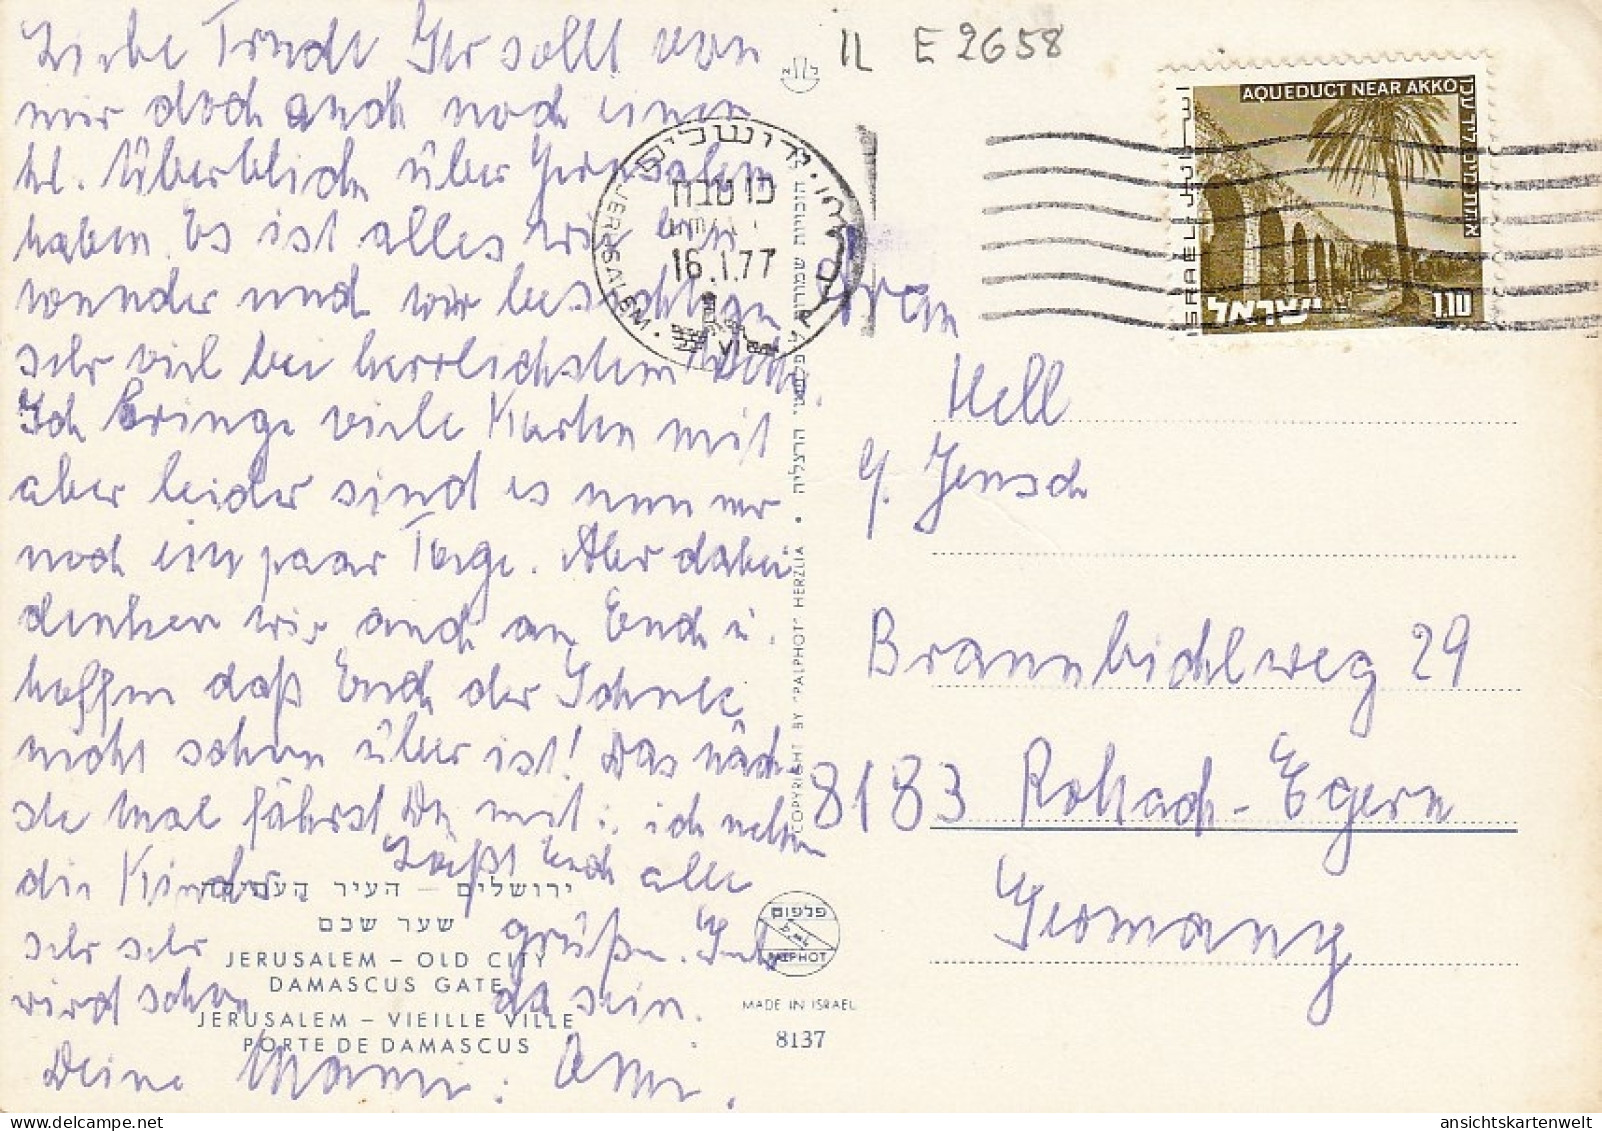 Liebe Trude Ihr sollt von
mir doch auch noch einen
kl. Überblick über Jerusalem
haben. Es ist alles wie ein
wunder und wir besichtigen
sehr viel bei herrlichstem
Ich bringe viele Karten mit
aber leider sind es nun nur
noch ein paar Tage. Aber dabei
denken wir auch an Euch u.
hoffen daß Euch der Schnee
nicht schon über ist! Das näch-
ste Mal fährst Du mit: ich nehm
die Kinder. Laßt Euch alle
sehr sehr grüßen. Gut
wird schon da sein.
Deine Mami: Omi.
IL E 2658
ירושלים
JERUSALEM
16.1.77
AQUEDUCT NEAR AKKO
ISRAEL
ישראל
1.10
Frau
Hell
g. Jensch
Braunbichlweg 29
8183 Rottach-Egern
Germany
COPYRIGHT BY "PALPHOT" HERZLIA • הרצליה
ירושלים – העיר העתיקה
שער שכם
JERUSALEM – OLD CITY
DAMASCUS GATE
JERUSALEM – VIEILLE VILLE
PORTE DE DAMASCUS
פלפוט
PALPHOT
MADE IN ISRAEL
8137
ansichtskartenwelt